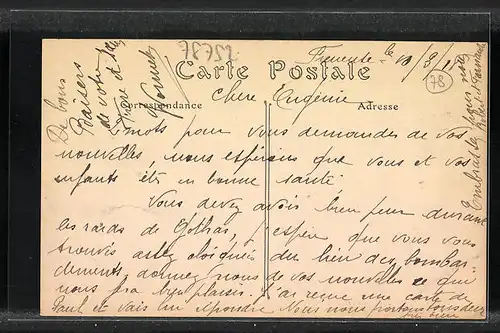 25786
le 10/8/1
Carte Postale
78
Correspondance
Adresse
Chère Eugénie
2 mots pour vous demander de vos
nouvelles, nous espérons que vous et vos
enfants êtes en bonne santé
Vous devez avoir bien peur durant
les raids de Gothas, j'espère que vous vous
trouvés assez éloignés du lieu des bombar-
dements, donnez nous de vos nouvelles ce qui
nous fra bien plaisir. J'ai reçue une carte de
Paul et vais lui répondre Nous nous portons tous deux
très bien
De bons
Baisers
de votre
Embrassez